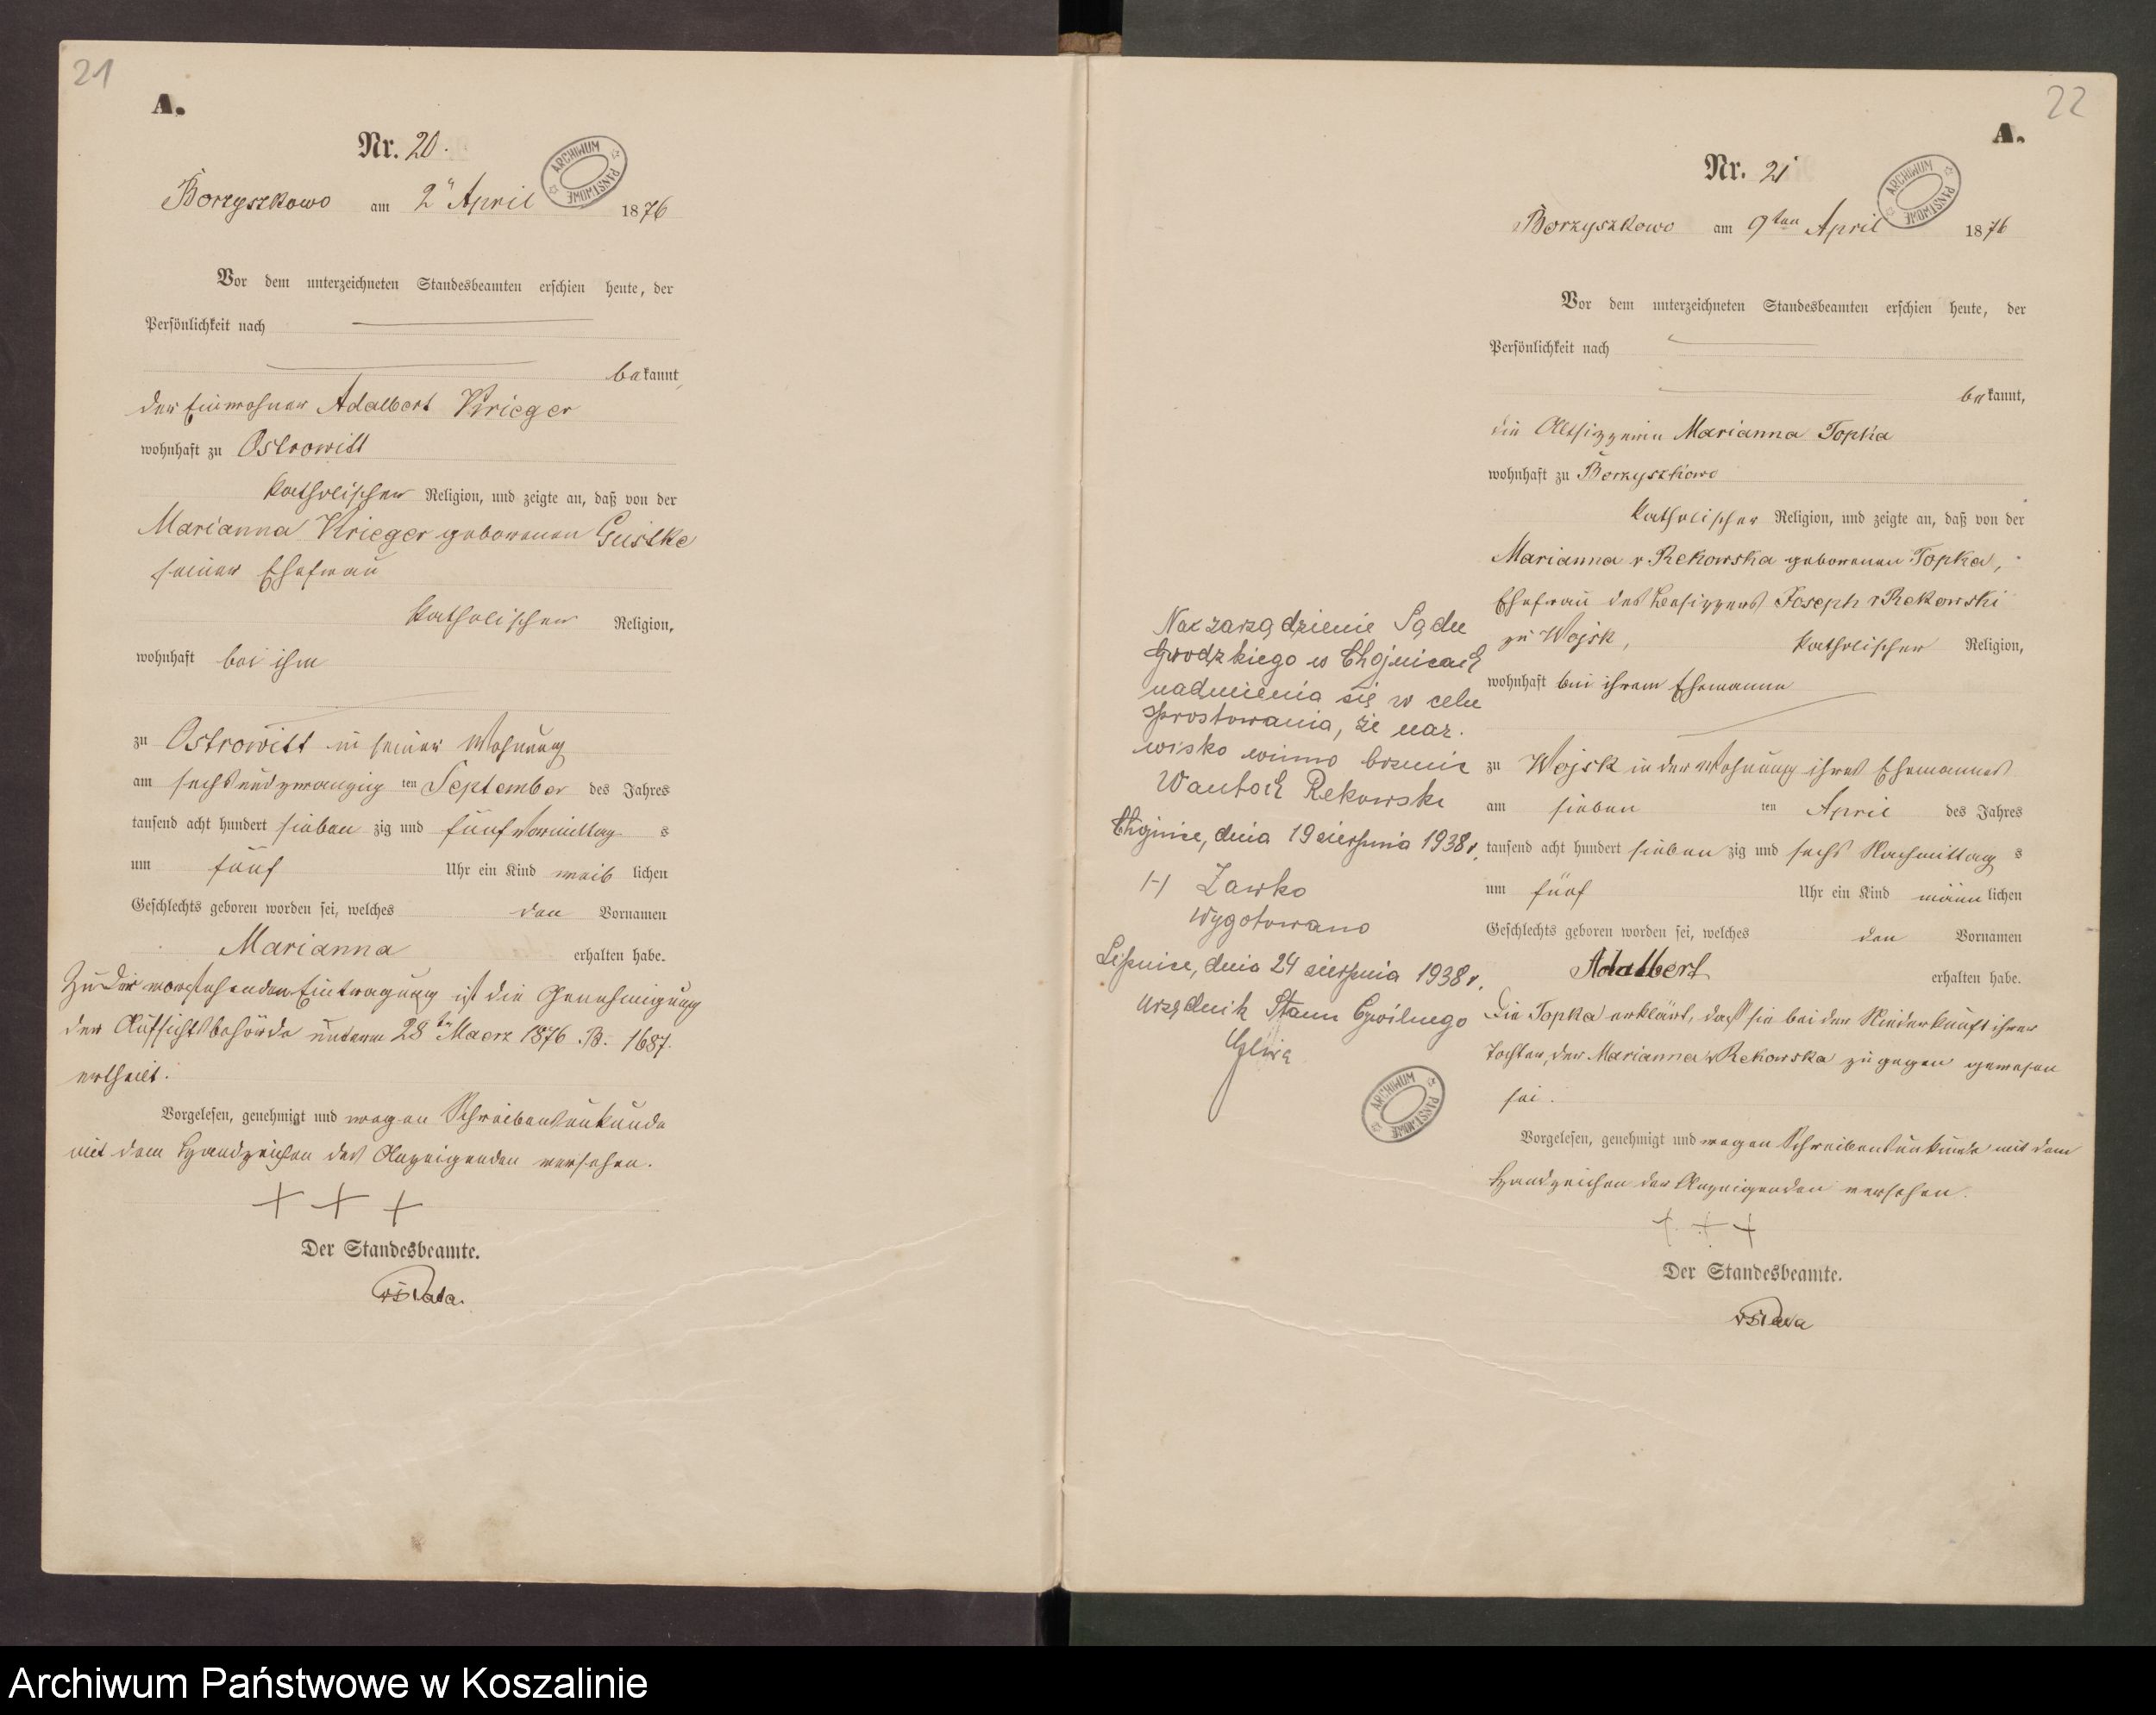 21
A.
Nr. 20.
ARCHIWUM PAŃSTWOWE
Borzyszkowo am 2ⁿ April 1876
Vor dem unterzeichneten Standesbeamten erschien heute, der
Persönlichkeit nach
bekannt,
der Einwohner Adalbert Krieger
wohnhaft zu Ostrowitt
katholischer Religion, und zeigte an, daß von der
Marianna Krieger geborenen Gustke
seiner Ehefrau
katholischer Religion,
wohnhaft bei ihm
zu Ostrowitt in seiner Wohnung
am sechsundzwanzig ten September des Jahres
tausend acht hundert sieben zig und fünf Vormittag s
um fünf Uhr ein Kind weib lichen
Geschlechts geboren worden sei, welches den Vornamen
Marianna erhalten habe.
Zu der vorstehenden Eintragung ist die Genehmigung
der Aufsichtsbehörde unterm 28ten Maerz 1876 B. 1687.
ertheilt.
Vorgelesen, genehmigt und wegen Schreibensunkunde
mit dem Handzeichen des Anzeigenden versehen.
+ + +
Der Standesbeamte.
22
A.
Nr. 21
ARCHIWUM PAŃSTWOWE
Borzyszkowo am 9ten April 1876
Vor dem unterzeichneten Standesbeamten erschien heute, der
Persönlichkeit nach
bekannt,
die Altsitzerin Marianna Topka
wohnhaft zu Borzyszkowo
katholischer Religion, und zeigte an, daß von der
Marianna v Rekowska geborenen Topka,
Ehefrau des Besitzers Joseph v Rekowski
zu Wojsk, katholischer Religion,
wohnhaft bei ihrem Ehemanne
zu Wojsk in der Wohnung ihres Ehemannes
am sieben ten April des Jahres
tausend acht hundert sieben zig und sechs Nachmittag s
um fünf Uhr ein Kind männ lichen
Geschlechts geboren worden sei, welches den Vornamen
Adalbert erhalten habe.
Die Topka erklärt, daß sie bei der Niederkunft ihrer
Tochter, der Marianna v Rekowska zugegen gewesen
sei.
Vorgelesen, genehmigt und wegen Schreibensunkunde mit dem
Handzeichen der Anzeigenden versehen.
+ + +
Der Standesbeamte.
Na zarządzenie Sądu
Grodzkiego w Chojnicach
nadmienia się w celu
sprostowania, że naz-
wisko winno brzmieć
Wantoch Rekowski
Chojnice, dnia 19 sierpnia 1938 r.
/-/ Zawko
Wygotowano
Lipnice, dnia 24 sierpnia 1938 r.
Urzędnik Stanu Cywilnego
ARCHIWUM PAŃSTWOWE
Archiwum Państwowe w Koszalinie